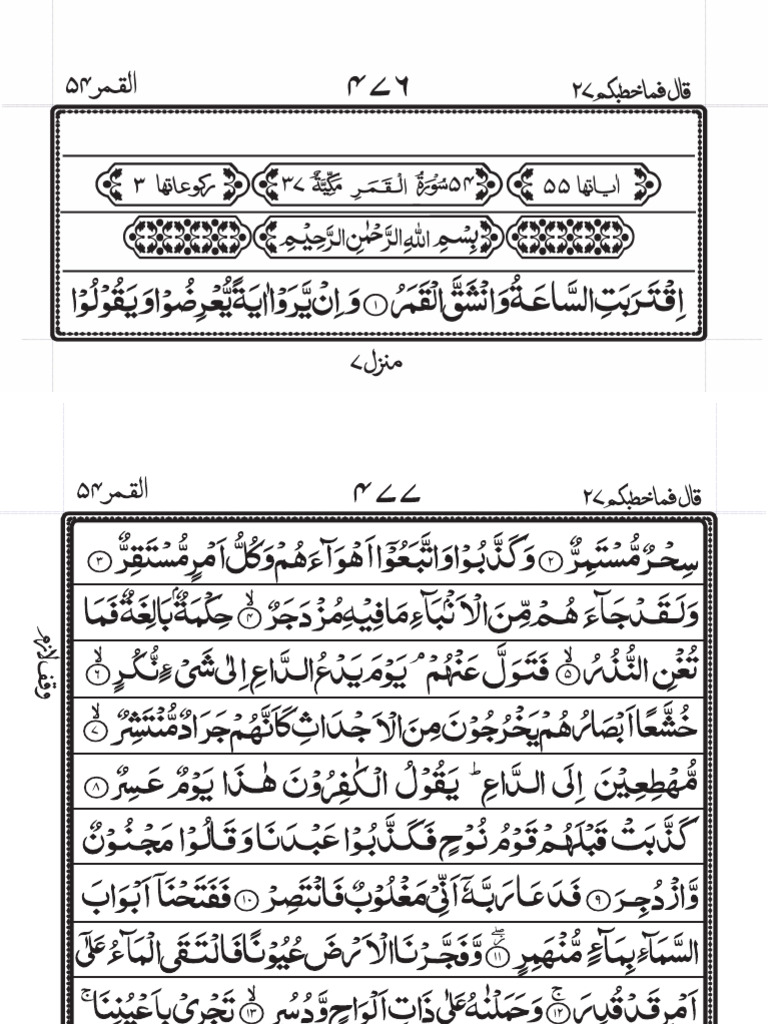 القمر ۵۴ ۴۷۶ قال فما خطبكم ۲۷
اياتها ۵۵ ۵۴ سُوْرَةُ الْقَمَرِ مَكِّيَّةٌ ۳۷ ركوعاتها ۳
بِسْمِ اللهِ الرَّحْمٰنِ الرَّحِيْمِ
اِقْتَرَبَتِ السَّاعَةُ وَانْشَقَّ الْقَمَرُ ۱ وَاِنْ يَّرَوْا اٰيَةً يُّعْرِضُوْا وَيَقُوْلُوْا
منزل ۷
القمر ۵۴ ۴۷۷ قال فما خطبكم ۲۷
سِحْرٌ مُّسْتَمِرٌّ ۲ وَكَذَّبُوْا وَاتَّبَعُوْٓا اَهْوَآءَهُمْ وَكُلُّ اَمْرٍ مُّسْتَقِرٌّ ۳
وَلَقَدْ جَآءَهُمْ مِّنَ الْاَنْۢبَآءِ مَا فِيْهِ مُزْدَجَرٌ ۙ۴ حِكْمَةٌۢ بَالِغَةٌ فَمَا
تُغْنِ النُّذُرُ ۙ۵ فَتَوَلَّ عَنْهُمْ ۘ يَوْمَ يَدْعُ الدَّاعِ اِلٰى شَيْءٍ نُّكُرٍ ۙ۶
وقف لازم
خُشَّعًا اَبْصَارُهُمْ يَخْرُجُوْنَ مِنَ الْاَجْدَاثِ كَاَنَّهُمْ جَرَادٌ مُّنْتَشِرٌ ۙ۷
مُّهْطِعِيْنَ اِلَى الدَّاعِ ؕ يَقُوْلُ الْكٰفِرُوْنَ هٰذَا يَوْمٌ عَسِرٌ ۸
كَذَّبَتْ قَبْلَهُمْ قَوْمُ نُوْحٍ فَكَذَّبُوْا عَبْدَنَا وَقَالُوْا مَجْنُوْنٌ
وَّازْدُجِرَ ۹ فَدَعَا رَبَّهٗٓ اَنِّيْ مَغْلُوْبٌ فَانْتَصِرْ ۱۰ فَفَتَحْنَآ اَبْوَابَ
السَّمَآءِ بِمَآءٍ مُّنْهَمِرٍ ۱۱ وَّفَجَّرْنَا الْاَرْضَ عُيُوْنًا فَالْتَقَى الْمَآءُ عَلٰٓى
اَمْرٍ قَدْ قُدِرَ ۚ۱۲ وَحَمَلْنٰهُ عَلٰى ذَاتِ اَلْوَاحٍ وَّدُسُرٍ ۙ۱۳ تَجْرِيْ بِاَعْيُنِنَا ۚ